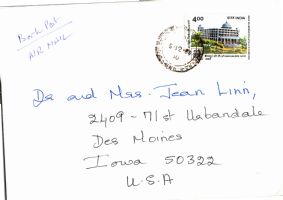 Book Post
AIR MAIL
4.00
भारत INDIA
Dr and Mrs. Jean Linn,
2409 - 71st Urbandale
Des Moines
Iowa 50322
U.S.A